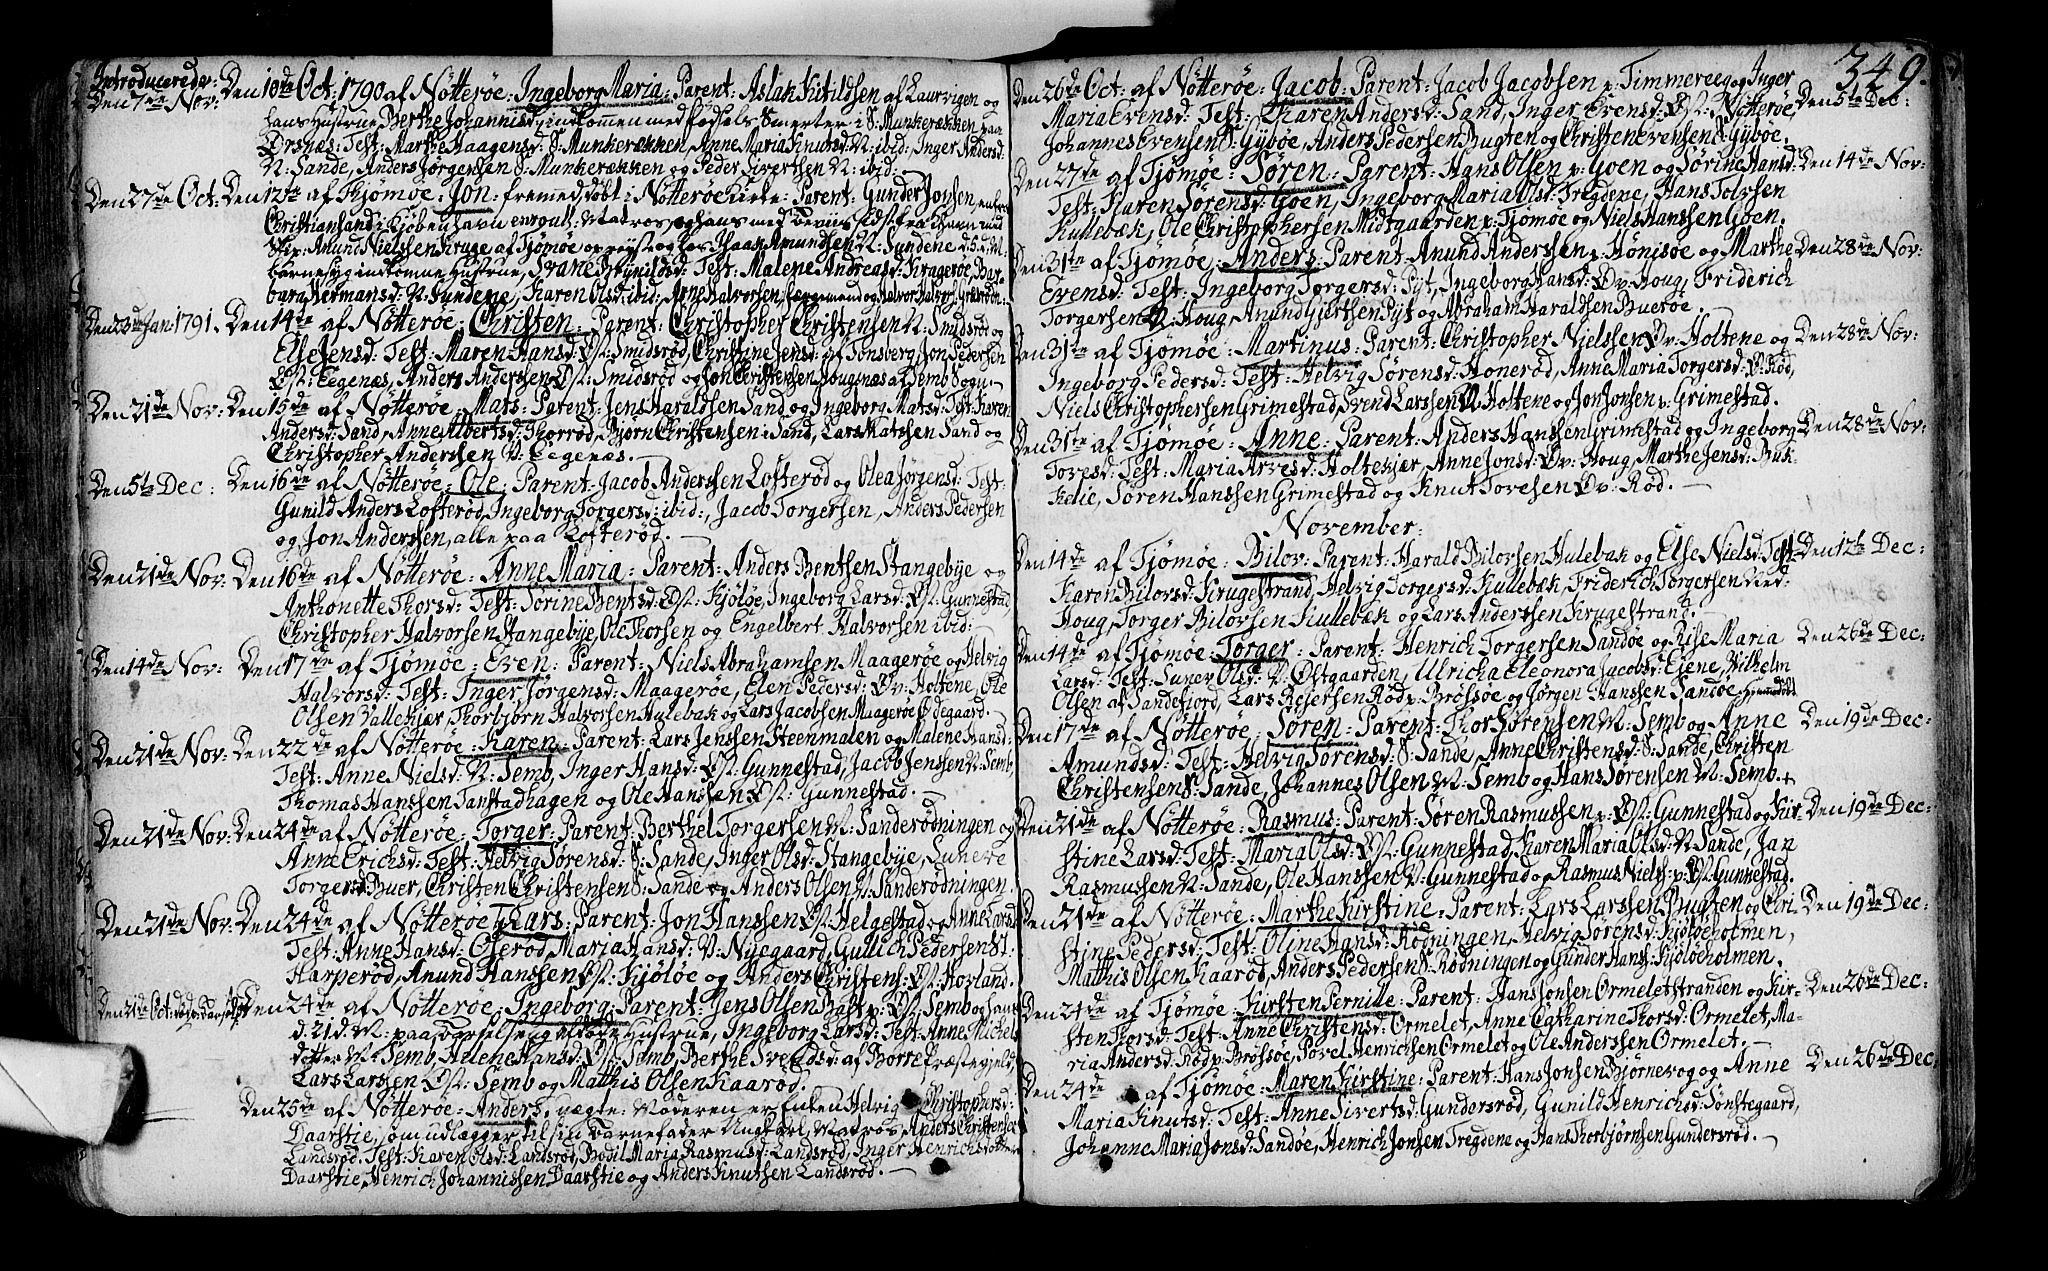 Introducerede:
Den 7de Nov: Den 10de Oct: 1790 af Nötterøe: Ingeborg Maria: Parent: Aslak Kitildsen af Laurvigen og
hans Hustrue Berthe Johannisd: indkommen med Födsels Smerter i S: Munkerækken paa
Örsnæs: Test: Marthe Haagensd: S: Munkerækken, Anne Maria Knutsd: N: ibid: Inger Andersd:
N: Sande, Anders Jörgensen S: Munkerækken og Peder Sivertsen N: ibid:
Den 27de Oct: Den 12te af Tjömøe: Jon: fremmed, döbt i Nötteröe Kirke: Parent: Gunder Jonsen,
Christiansand i Kjöbenhavn enroull: Matros, og hans med
Skip: Amund Nielssen Kruge af Tjömöe og Isaac Amundsen N: Sundene
barnesyg indkomne Hustrue, Svane Brynildsd: Test: Malene Andreasd: Krageröe, Bar-
bara Hermansd: N: Sundene, Karen Olsd: ibid: Arne Halvorsen,
Den 23de Jan: 1791. Den 14de af Nötterøe: Christen: Parent: Christopher Christensen N: Smidsröd og
Else Jensd: Test: Maren Hansd: Öst: Smidsröd, Christine Jensd: af Tönsberg, Jon Pedersen
Öst: Eegenæs, Anders Anderssen Öst: Smidsröd og Jon Christensen Hougsnæs af Semb Sogn.
Den 21de Nov: Den 15de af Nötterøe: Mats: Parent: Jens Haraldsen Sand og Ingeborg Matsd: Test: Karen
Andersd: Sand, Anne Albertsd: Thorröd, Bjorn Christensen Sand, Lars Matssen Sand og
Christopher Anderssen V: Eegenæs.
Den 5te Dec: Den 16de af Nötterøe: Ole: Parent: Jacob Anderssen Lofteröd og Olea Jörgensd: Test:
Gunild Anders Lofteröd, Ingeborg Torgersd: ibid:, Jacob Torgersen, Anders Pedersen
og Jon Anderssen, alle paa Lofteröd.
Den 21de Nov: Den 16de af Nötterøe: Anne Maria: Parent: Anders Bentsen Stangebye og
Anthonette Thorsd: Test: Sorine Bentsd: Öst: Kjölöe, Ingeborg Larsd: Öst: Gunnestad,
Christopher Halvorsen Stangebye, Ole Thorsen og Engelbert Halvorsen ibid:
Den 14de Nov: Den 17de af Tjömøe: Even: Parent: Niels Abrahamsen Maageröe og Helvig
Halvorsd: Test: Inger Jörgensd: Maageröe, Elen Pedersd: Öv: Holtene, Ole
Olsen Vallekjær, Thorbjörn Halvorsen Hulebak og Lars Jacobsen Maageröe Ödegaard.
Den 21de Nov: Den 22de af Nötterøe: Karen: Parent: Lars Jenssen Steenmalen og Malene Hansd:
Test: Anne Nielsd: N: Semb, Inger Hansd: Öst: Gunnestad, Jacob Jenssen N: Semb,
Thomas Hanssen Tanstadhagen og Ole Hanssen Öst: Gunnestad.
Den 21de Nov: Den 24de af Nötterøe: Torger: Parent: Berthel Torgersen N: Sanderödningen og
Anne Erichsd: Test: Helvig Sörensd: S: Sande, Inger Olsd: Stangebye, Suneve
Torgersd: Buer, Christen Christensen S: Sande og Anders Olsen N: Sanderödningen.
Den 21de Nov: Den 24de af Nötterøe: Lars: Parent: Jon Hanssen Öst: Helgestad og Anne Larsd:
Test: Anne Hansd: Oseröd, Maria Hansd: N: Nyegaard, Gullich Pedersen St:
Harperöd, Anund Hanssen Öst: Kjölöe og Anders Christens: Öst: Hovland.
Den 21de Oct: Den 24de af Nötterøe: Ingeborg: Parent: Jens Olsen Bast p: Öst: Semb og hans
d: 21 d: M: paa Barselseng udöde Hustrue, Ingeborg Larsd: Test: Anne Michels
datter N: Semb, Helene Hansd: Öst: Semb, Berthe Svendsd: af Borre Præstegjeld,
Lars Larssen Öst: Semb og Mathis Olsen Kaaröd.
Den 25de af Nötterøe: Anders, uægte: Moderen er Enken Helvig Christophersd:
Daarstie, som udlægger til sin Barnefader Ungkarl, Matros, Anders Christensen
Landsröd. Test: Karen Olsd: Landsröd, Bodil Maria Rasmusd: Landsröd, Inger Henrichsdotter
Daarstie, Henrich Johannissen Daarstie og Anders Knutsen Landsröd.
349.
Den 26de Oct: af Nötterøe: Jacob: Parent: Jacob Jacobsen p: Timmereeg og Inger
Maria Evensd: Test: Karen Andersd: Sand, Inger Evensd: Öst: Nötteröe, Den 5te Dec:
Johannes Evensen S: Gyböe, Anders Pedersen Bugten og Christen Evensen S: Gyböe.
Den 27de af Tjömøe: Sören: Parent: Hans Olsen p: Goen og Sörine Hansd: Den 14de Nov:
Test: Karen Sörensd: Goen, Ingeborg Maria Olsd: Tregdene, Hans Tolvsen
Kullebæk, Ole Christophersen Midtgaarden p: Tjömöe og Niels Hanssen Goen.
Den 31te af Tjömøe: Anders: Parent: Anund Anderssen p: Hönsöe og Marthe Den 28de Nov:
Evensd: Test: Ingeborg Torgersd: Pyt, Ingeborg Hansd: Öv: Houg, Friderich
Torgersen N: Houg, Anund Gjertsen Pyt og Abraham Haraldsen Bueröe.
Den 31te af Tjömøe: Martinus: Parent: Christopher Nielssen Öv: Holtene og Den 28de Nov:
Ingeborg Pedersd: Test: Helvig Sörensd: Honeröd, Anne Maria Torgersd: Ö: Röd,
Niels Christophersen Grimestad, Svend Larssen N: Holtene og Jon Jonsen p: Grimestad.
Den 31te af Tjömøe: Anne: Parent: Anders Hanssen Grimestad og Ingeborg Den 28de Nov:
Toresd: Test: Maria Arvesd: Holtekjær, Anne Jonsd: Öv: Houg, Marthe Jensd: Buk-
kelie, Sören Hanssen Grimestad og Knut Toresen Öv: Röd.
November:
Den 14de af Tjömøe: Bilov: Parent: Harald Bilovsen Hulebak og Else Nielsd: Test: Den 12te Dec:
Karen Bilovsd: Krugestrand, Helvig Torgersd: Kullebæk, Friderich Torgersen Ned:
Houg, Torger Bilovsen Kullebæk og Lars Anderssen Krugestrand.
Den 14de af Tjömøe: Torger: Parent: Henrich Torgersen Sandöe og Kise Maria Den 26de Dec:
Larsd: Test: Sunev Olsd: N: Östgaarden, Ulricha Eleonora Jacobsd: Eiene, Wilhelm
Olsen af Sandefiord, Lars Reiersen Röd p: Brössöe og Jörgen Hanssen Sandöe. Hjemmedöbt
Den 17de af Nötterøe: Sören: Parent: Thor Sörensen N: Semb og Anne Den 19de Dec:
Amundsd: Test: Helvig Sörensd: S: Sande, Anne Christensd: S: Sande, Christen
Christensen S: Sande, Johannes Olsen N: Semb og Hans Sörensen N: Semb.
Den 21de af Nötterøe: Rasmus: Parent: Sören Rasmussen p: Öst: Gunnestad og Kir- Den 19de Dec:
stine Larsd: Test: Maria Olsd: Öst: Gunnestad, Karen Maria Olsd: N: Sande, Jan
Rasmussen N: Sande, Ole Hanssen V: Gunnestad og Rasmus Niels: p: Öst: Gunnestad.
Den 21de af Nötterøe: Marthe Kirstine: Parent: Lars Larssen Bugten og Chri- Den 19de Dec:
stine Pedersd: Test: Oline Hansd: Rödningen, Helvig Sörensd: Kjölöeholmen,
Mathis Olsen Kaaröd, Anders Pedersen S: Rödningen og Gunder Hans: Kjölöeholmen.
Den 24de af Tjömøe: Kirsten Pernille: Parent: Hans Jonsen Ormeletstranden og Kir- Den 26de Dec:
sten Thorsd: Test: Anne Christensd: Ormelet, Anne Catharine Thorsd: Ormelet, Ma-
ria Andersd: Röd p: Brössöe, Povel Henrichsen Ormelet og Ole Anderssen Ormelet.
Den 24de af Tjömøe: Maren Kirstine: Parent: Hans Jonsen Bjönevog og Anne Den 26de Dec:
Maria Knutsd: Test: Anne Sivertsd: Gundersröd, Gunild Henrichsd: Sönstegaard,
Johanne Maria Jonsd: Sandöe, Henrich Jonsen Tregdene og Hans Thorbjörnsen Gundersröd.